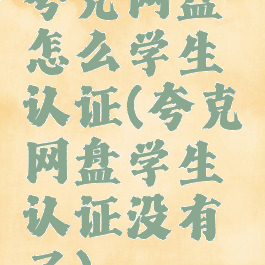 夸克网盘
怎么学生
认证(夸克
网盘学生
认证没有
了)